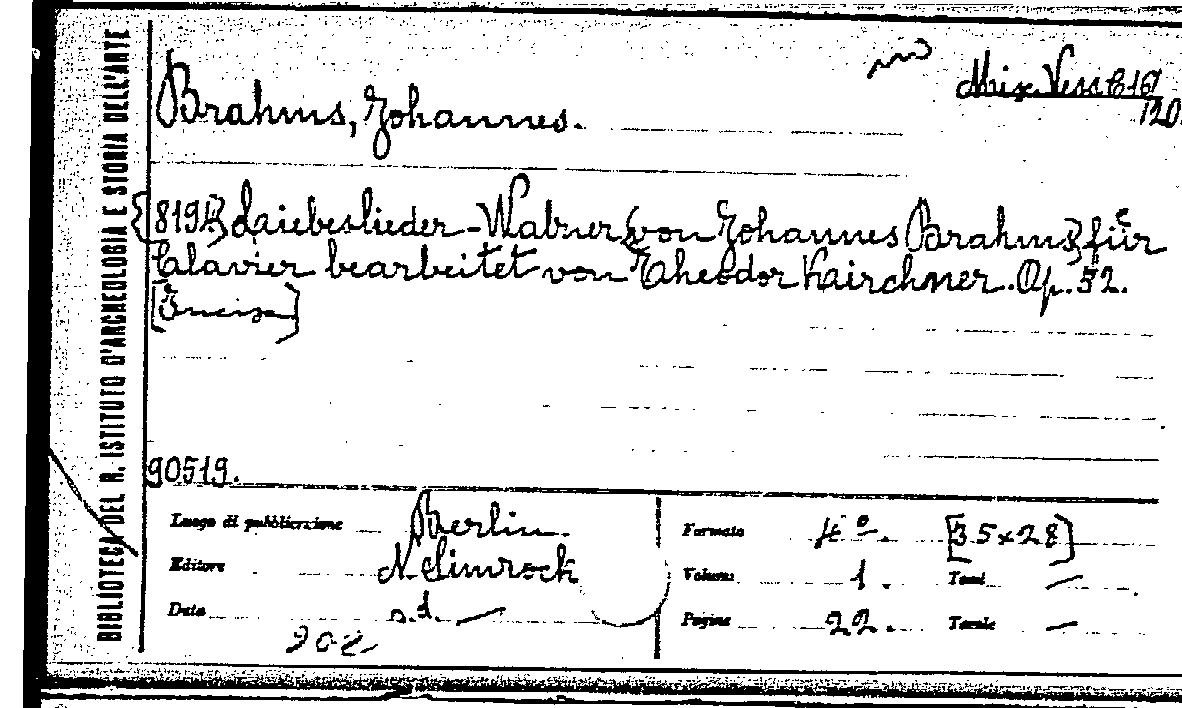 BIBLIOTECA DEL R. ISTITUTO D'ARCHEOLOGIA E STORIA DELL'ARTE
Mus. Vess C 16/120
Brahms, Johannes.
[8194] Liebeslieder-Walzer [von Johannes Brahms] für
Clavier bearbeitet von Theodor Kirchner. Op. 52.
90519.
Luogo di pubblicazione Berlin.
Editore N. Simrock
Data s.d. —
902
Formato 4º. [35x28]
Volumi 1. Tomi —
Pagine 22. Tavole —